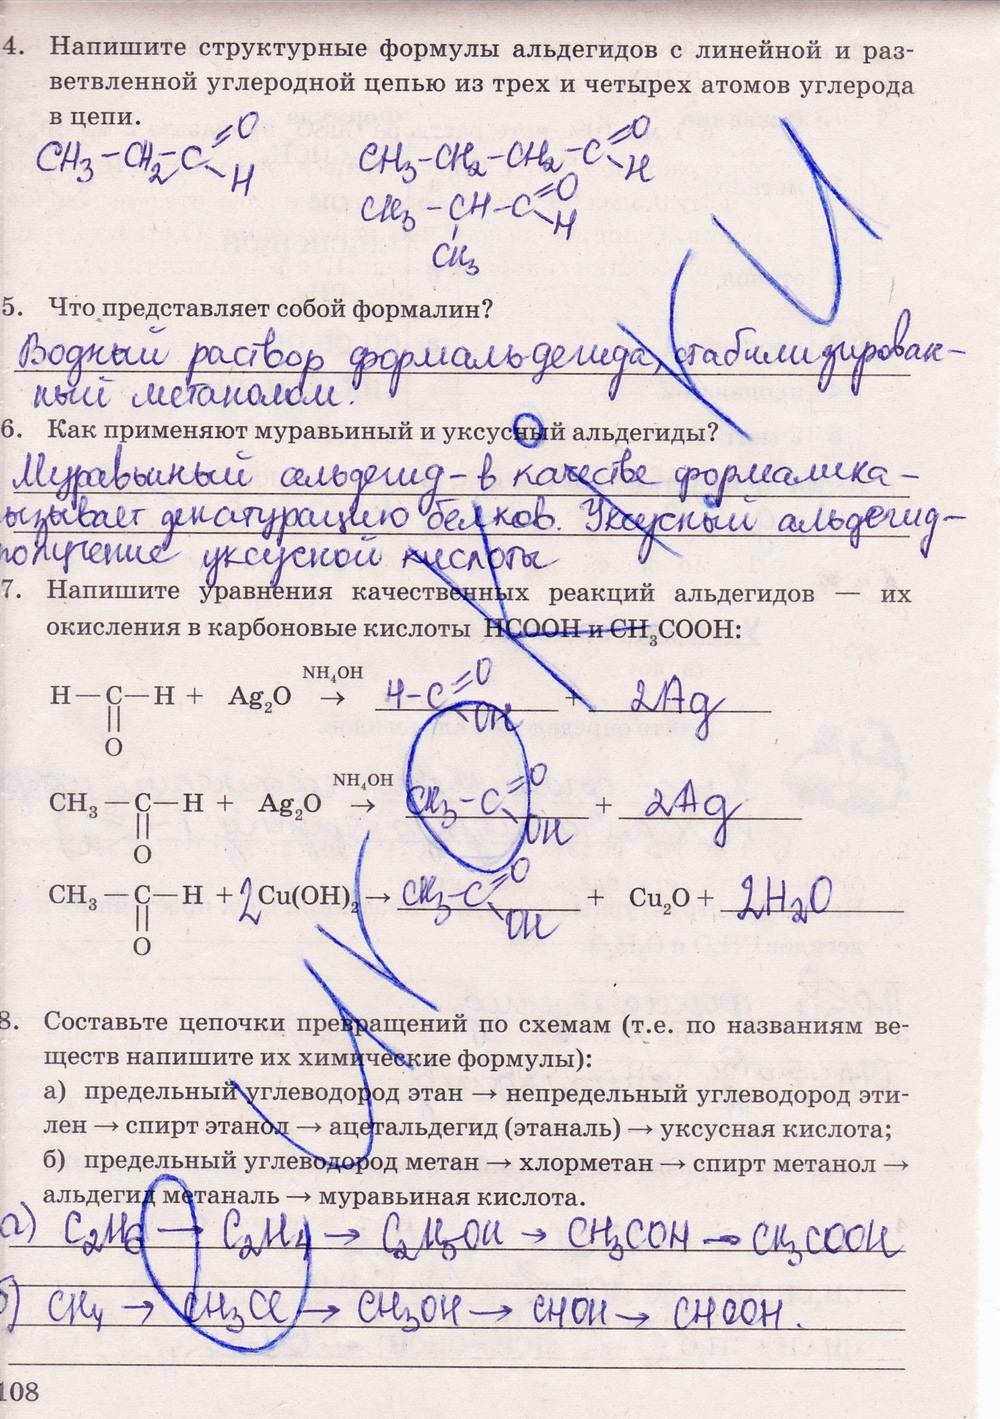 4. Напишите структурные формулы альдегидов с линейной и раз-
ветвленной углеродной цепью из трех и четырех атомов углерода
в цепи.
CH₃–CH₂–C=O H CH₃–CH₂–CH₂–C=O H
CH₃–CH–C=O H
CH₃
5. Что представляет собой формалин?
Водный раствор формальдегида, стабилизирован-
ный метанолом.
6. Как применяют муравьиный и уксусный альдегиды?
Муравьиный альдегид – в качестве формалина –
ызывает денатурацию белков. Уксусный альдегид –
получение уксусной кислоты
7. Напишите уравнения качественных реакций альдегидов — их
окисления в карбоновые кислоты HCOOH и CH₃COOH:
H—C—H + Ag₂O NH₄OH → H–C=O OH + 2Ag
O
CH₃—C—H + Ag₂O NH₄OH → CH₃–C=O OH + 2Ag
O
CH₃—C—H + 2Cu(OH)₂ → CH₃–C=O OH + Cu₂O + 2H₂O
O
8. Составьте цепочки превращений по схемам (т.е. по названиям ве-
ществ напишите их химические формулы):
а) предельный углеводород этан → непредельный углеводород эти-
лен → спирт этанол → ацетальдегид (этаналь) → уксусная кислота;
б) предельный углеводород метан → хлорметан → спирт метанол →
альдегид метаналь → муравьиная кислота.
а) C₂H₆ → C₂H₄ → C₂H₅OH → CH₃COH → CH₃COOH
б) CH₄ → CH₃Cl → CH₃OH → CHOH → CHOOH.
108